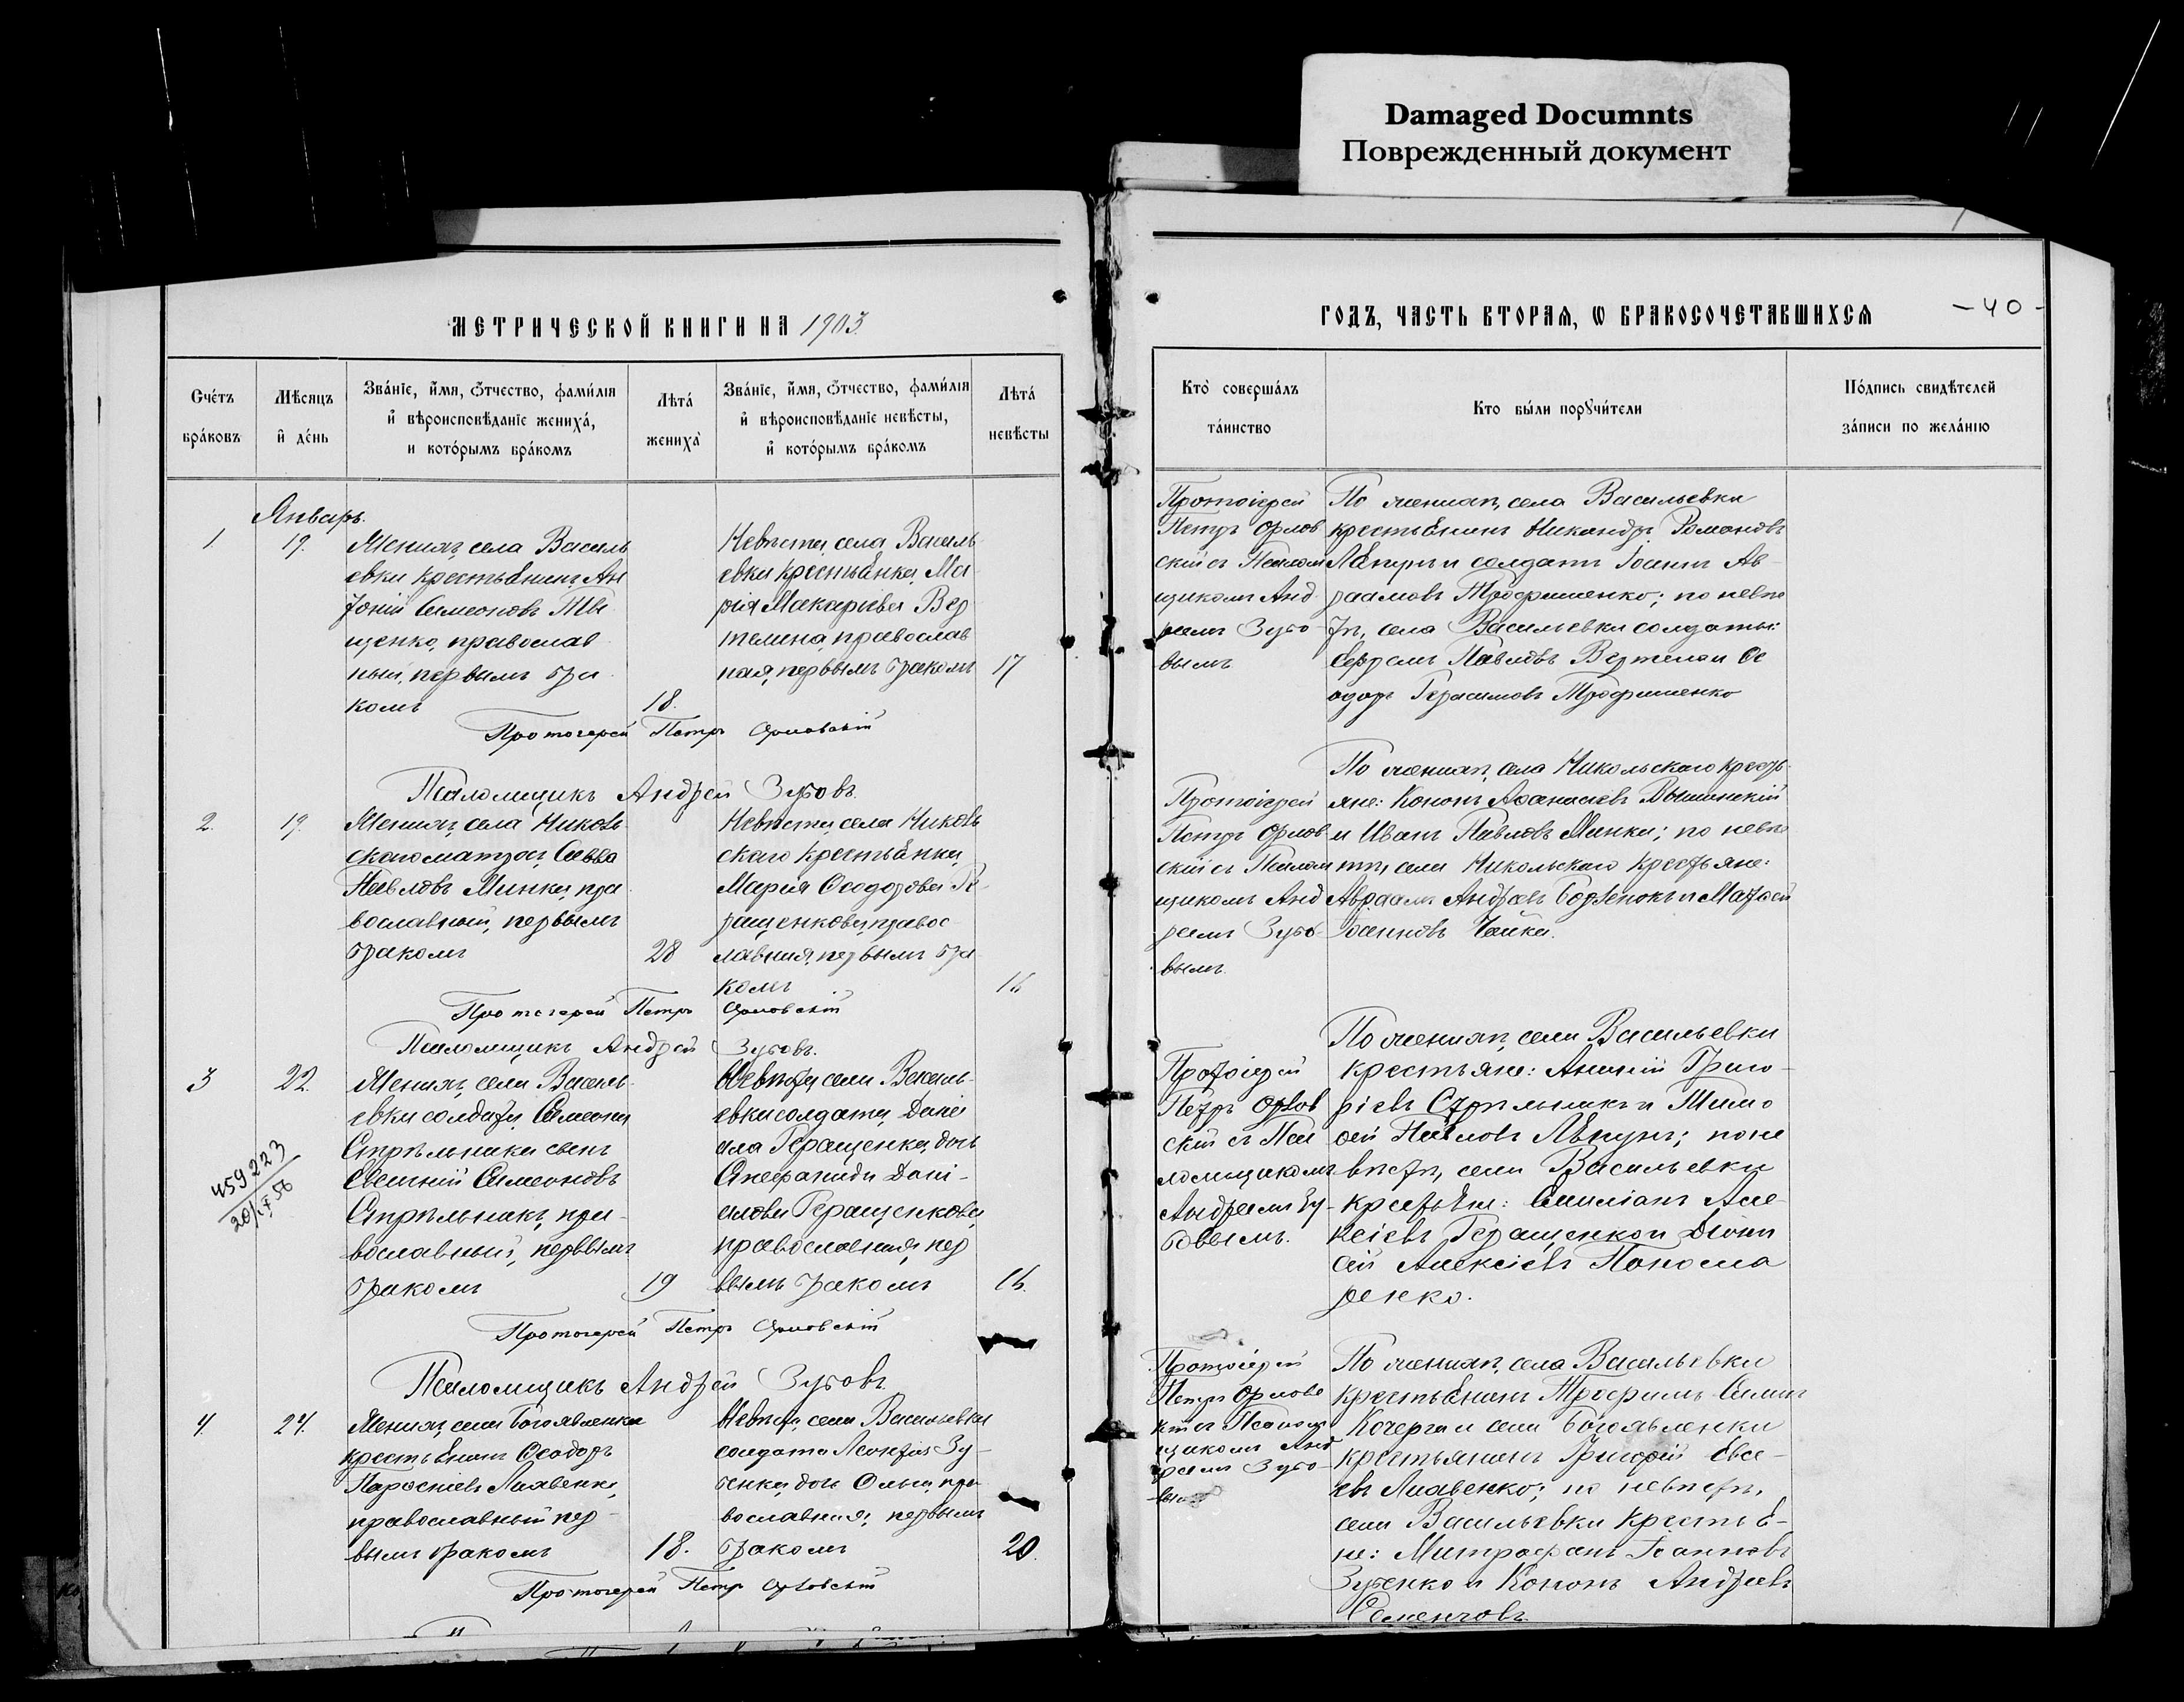 Damaged Documnts
Поврежденный документ
МЕТРИЧЕСКОЙ КНИГИ НА 1903
ГОДЪ, ЧАСТЬ ВТОРАѦ, Ѡ БРАКОСОЧЕТАВШИХСѦ
- 40 -
Сче́тъ бра́ковъ
Мѣ́сяцъ и҆ де́нь
Зва́нїе, и҆́мя, ѻ҆́тчество, фами́лїя и҆ вѣроисповѣ́данїе жениха́, и кото́рымъ бра́комъ
Лѣта́ жениха̀
Зва́нїе, и҆́мя, ѻ҆́тчество, фами́лїя и҆ вѣроисповѣ́данїе невѣ́сты, и҆ кото́рымъ бра́комъ
Лѣта́ невѣ́сты
Кто̀ соверша́лъ та́инство
Кто бы́ли порꙋчи́тели
По́дпись свидѣ́телей за́писи по жела́нїю
Январь.
1
19.
Женихъ, села Василь
евки крестьянинъ, Ан
Симеоновъ
щенко, православ
ный, первымъ бра
комъ
18.
Невѣста, села Василь
евки крестьянка, Ма
рія Макарьева Вер
телина, православ
ная, первымъ бракомъ
17
Протоіерей
Петръ Орлов
скій съ Псалом
щикомъ Анд
реемъ Зубо
вымъ
По женихѣ, села Васильевки
крестьянинъ Никандръ Романовъ
Ляпунъ и солдатъ Іоаннъ Ав
раамовъ Трофименко; по невѣс
тѣ, села Васильевки солдаты:
Павловъ Вертела и Ѳе
одоръ Герасимовъ Трофименко
Протоіерей Петръ Орловскій
Псаломщикъ Андрей Зубовъ.
2.
19.
Женихъ, села Николь
скаго матросъ, Савва
Павловъ Минка, пра
вославный, первымъ
бракомъ
28
Невѣста, села Николь
скаго крестьянка,
Марія Ѳеодорова Ге
ращенкова, правос
лавная, первымъ бра
комъ
16
Протоіерей
Петръ Орлов
скій съ Псалом
щикомъ Анд
реемъ Зубо
вымъ.
По женихѣ, села Никольскаго кресть
яне: Кононъ Аѳанасіевъ
и Иванъ Павловъ Минка; по невѣс
тѣ, села Никольскаго крестьяне:
Авраамъ Андреевъ и Матѳей
Іоанновъ Чайка.
Протоіерей Петръ Орловскій
Псаломщикъ Андрей Зубовъ.
3
22.
459223
Женихъ, села Василь
евки солдата, Симеона
Стрѣльника сынъ
Евгеній Симеоновъ
Стрѣльникъ, пра
вославный, первымъ
бракомъ
19
Невѣста, села Василь
евки солдата, Дані
ила Геращенка, дочь
Дані
илова Геращенкова,
православная, пер
вымъ бракомъ
16.
Протоіерей
Петръ Орлов
скій съ Пса
ломщикомъ
Андреемъ Зу
бовымъ.
По женихѣ, села Васильевки
крестьяне: Григо
ріевъ Стрѣльникъ и Тимо
ѳей Павловъ Ляпунъ; по не
вѣстѣ, села Васильевки
крестьяне: Але
ксіевъ Геращенко и
Алексіевъ Понома
ренко.
Протоіерей Петръ Орловскій
Псаломщикъ Андрей Зубовъ.
4.
24.
Женихъ, села Богоявленки
крестьянинъ Ѳеодоръ
православный, пер
вымъ бракомъ
18.
Невѣста, села Васильевки
солдата Леонтія Зу
бенка, дочь Ольга, пра
вославная, первымъ
бракомъ
20.
Протоіерей
Петръ Орловс
кій съ Псалом
щикомъ Анд
реемъ Зубо
вымъ
По женихѣ, села Васильевки
крестьянинъ Трофимъ
Кочерга и села Богоявленки
крестьянинъ Григорій Евсе
евъ по невѣстѣ,
села Васильевки крестья
не: Митрофанъ Іоанновъ
Зубенко и Кононъ Андреевъ
Семенговъ.
Протоіерей Петръ Орловскій